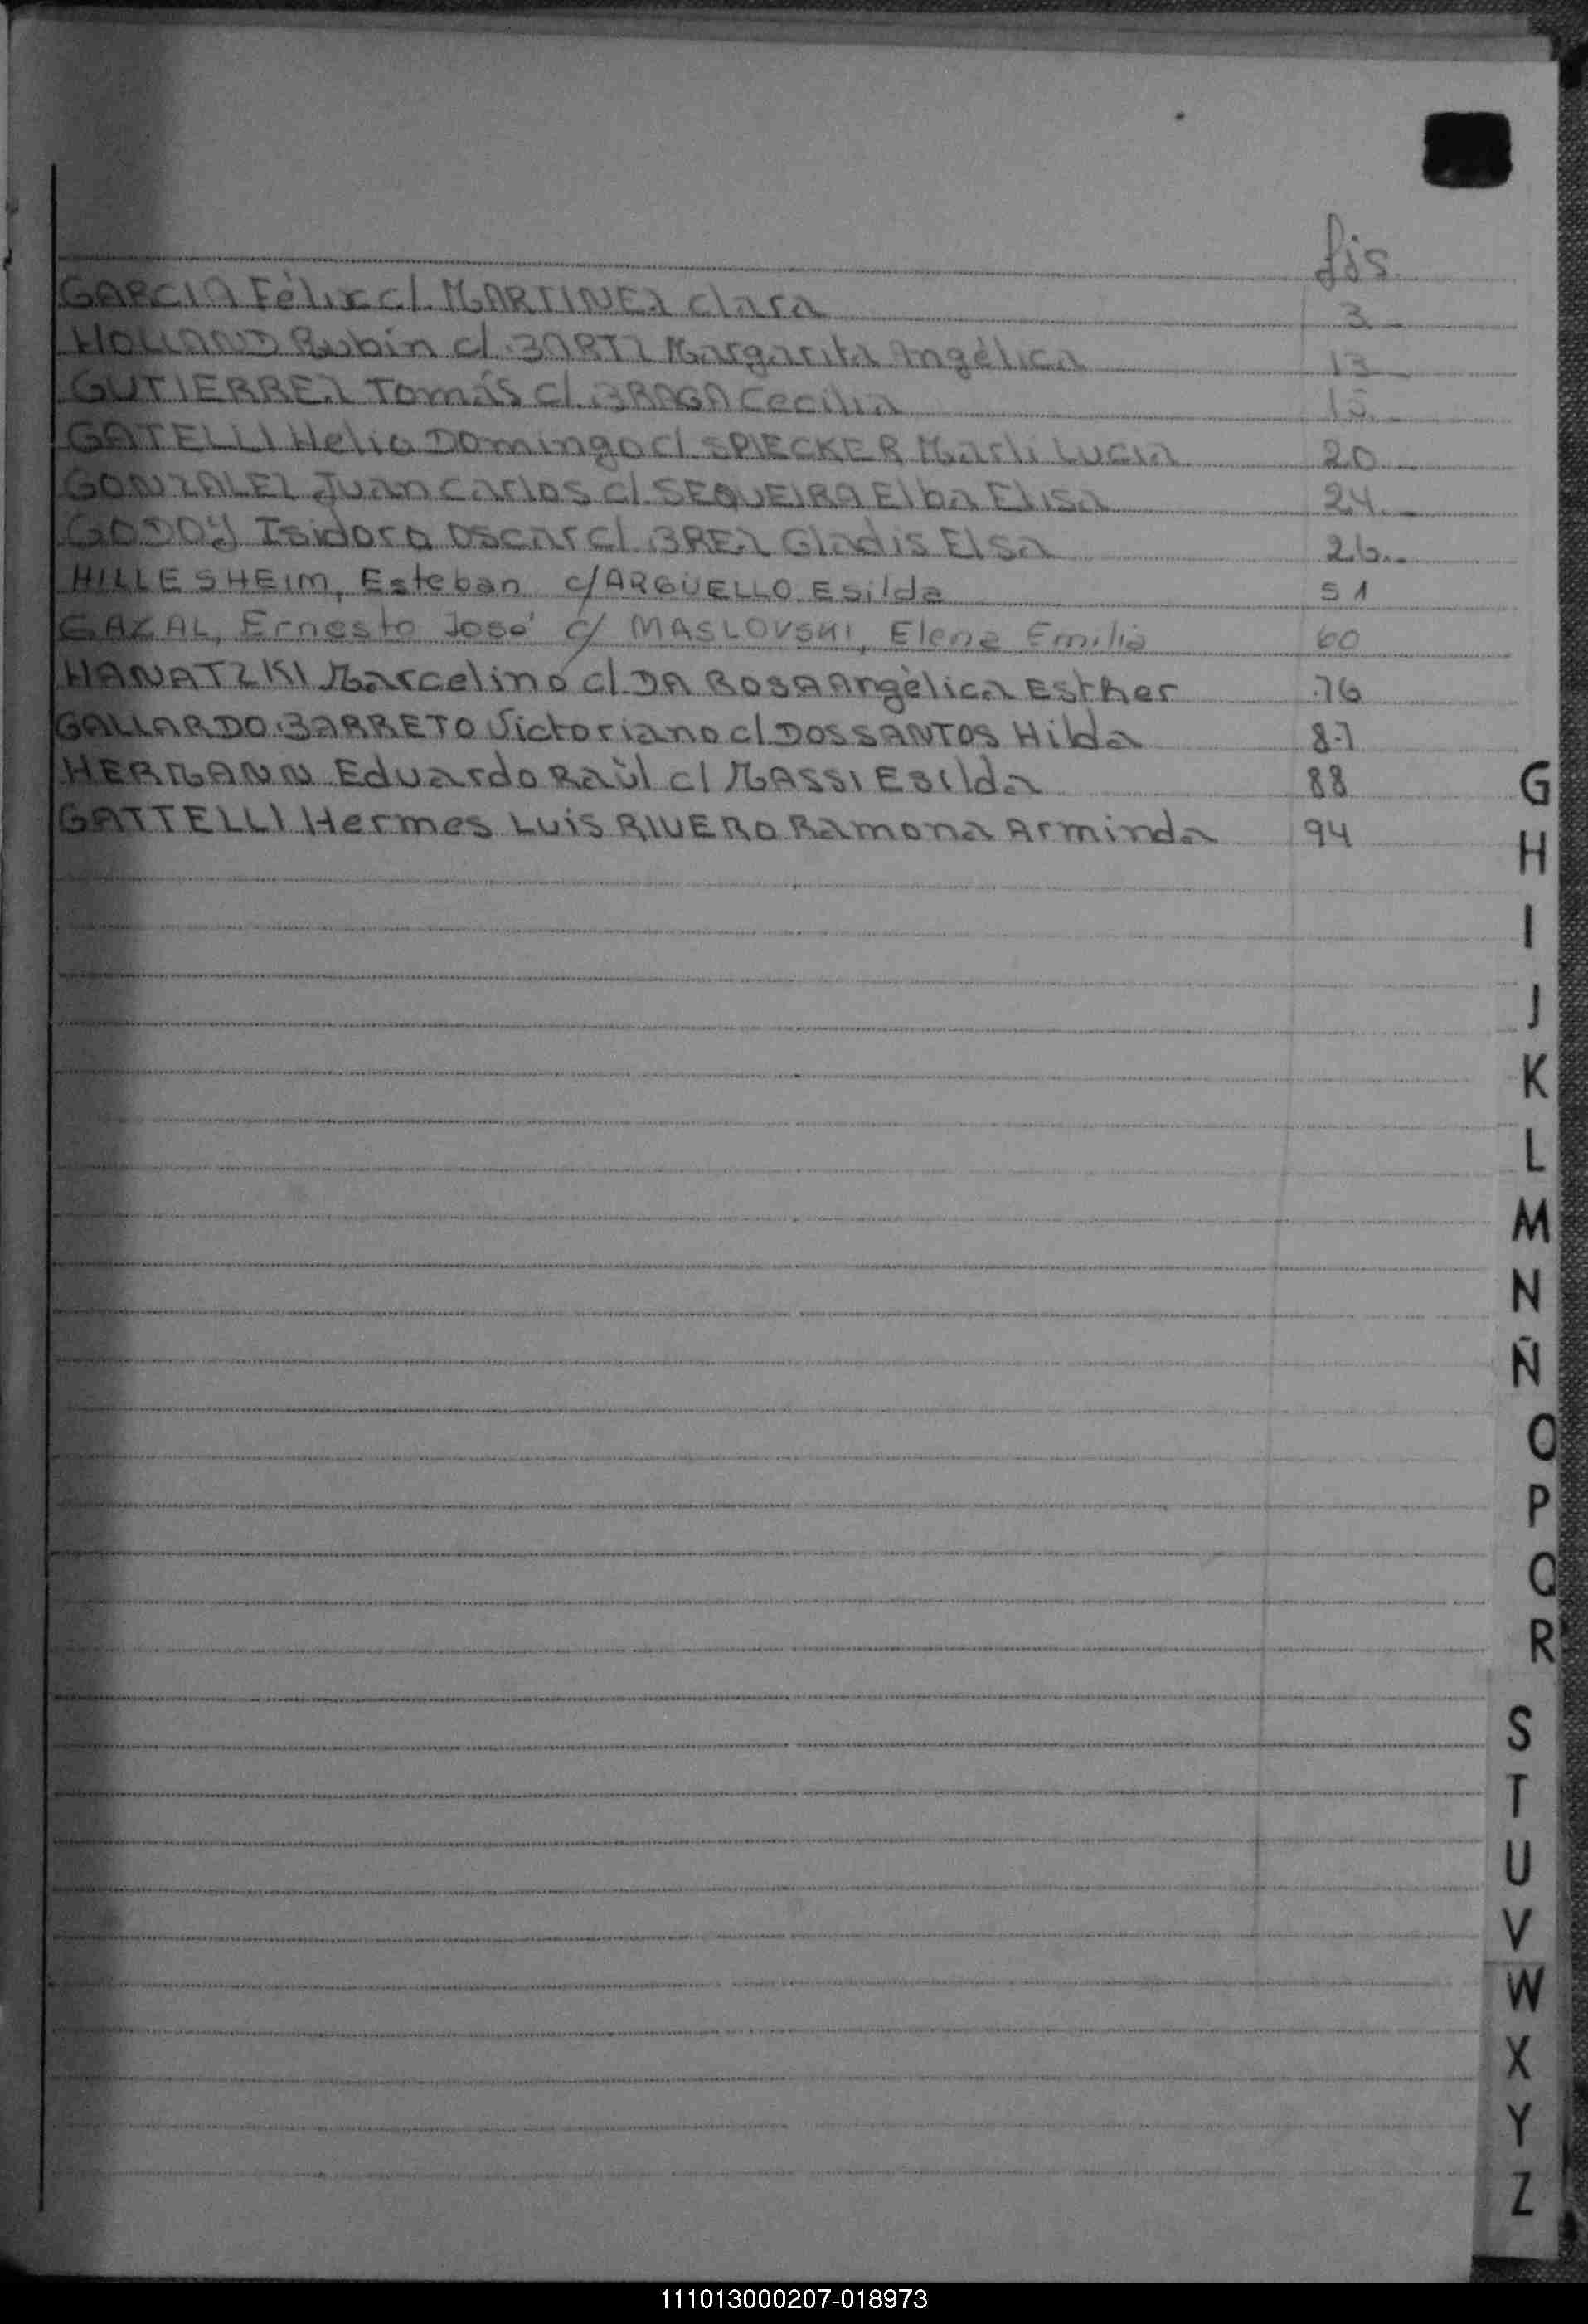 fjs.
GARCIA Félix c/. MARTINEZ Clara 3
HOLLAND Rubin c/. BARTZ Margarita Angélica 13
GUTIERREZ Tomás c/. BRAGA Cecilia 15
GATELLI Helio Domingo c/ SPIECKER Marli Lucia 20
GONZALEZ Juan Carlos c/. SEQUEIRA Elba Elisa 24
GODOY Isidoro Oscar c/. BREZ Gladis Elsa 26
HILLESHEIM, Esteban c/ ARGÜELLO Esilda 51
GAZAL, Ernesto José c/ MASLOVSKI, Elena Emilia 60
HANATZKI Marcelino c/. DA ROSA Angélica Esther 76
GALLARDO BARRETO Victoriano c/ DOS SANTOS Hilda 87
HERMANN Eduardo Raúl c/ MASSI Esilda 88
GATTELLI Hermes Luis RIVERO Ramona Arminda 94
G
H
I
J
K
L
M
N
Ñ
O
P
Q
R
S
T
U
V
W
X
Y
Z
111013000207-018973